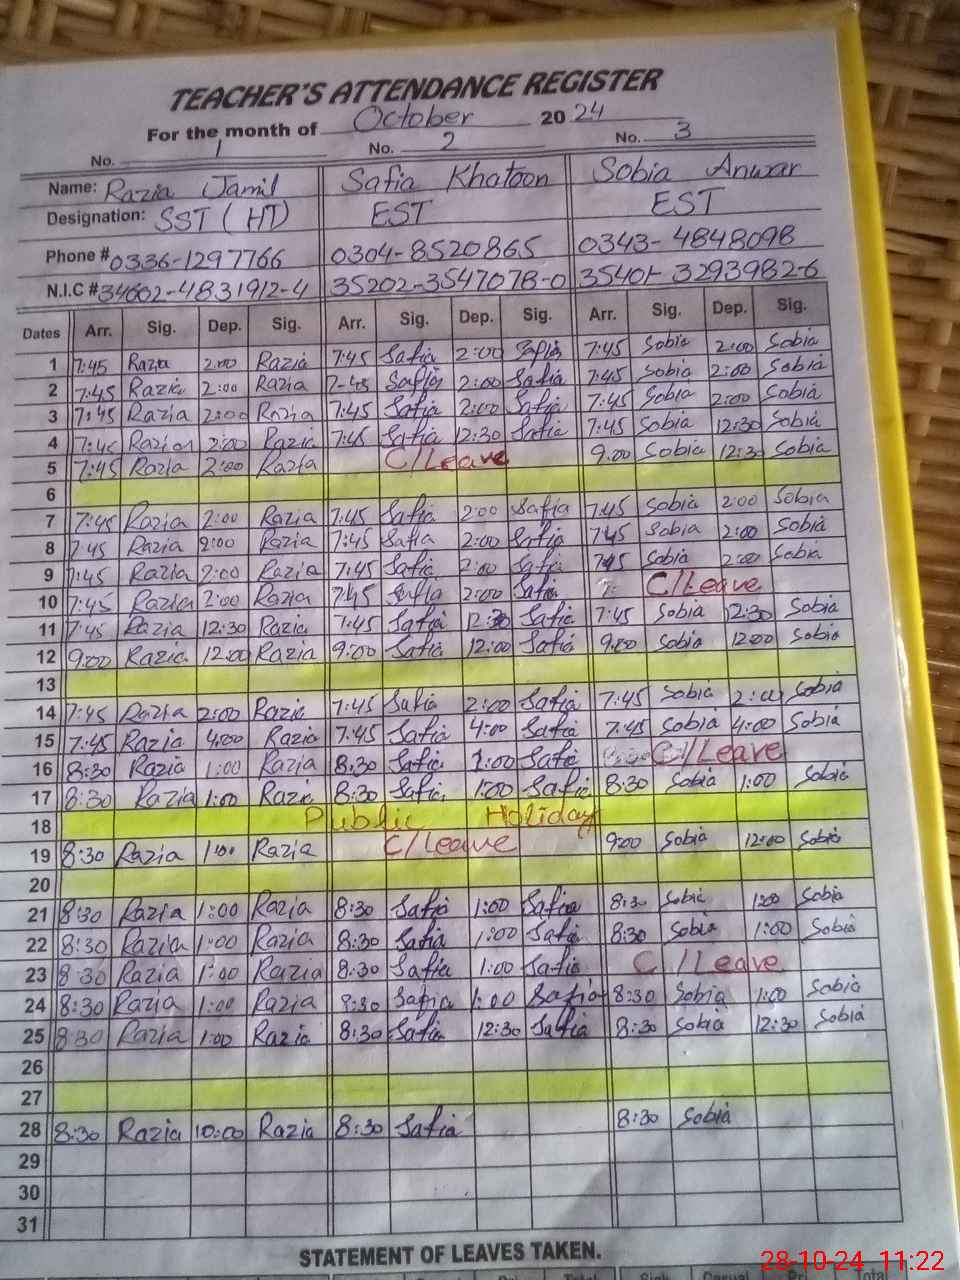 TEACHER'S ATTENDANCE REGISTER
For the month of October 2024
No. 1 No. 2 No. 3
Name: Razia Jamil Safia Khatoon Sobia Anwar
Designation: SST (HT) EST EST
Phone # 0336-1297766 0304-8520865 0343-4848098
N.I.C # 34602-4831912-4 35202-3547078-0 35401-3293982-6
Dates Arr. Sig. Dep. Sig. Arr. Sig. Dep. Sig. Arr. Sig. Dep. Sig.
1 7:45 Razia 2:00 Razia 7:45 Safia 2:00 Safia 7:45 Sobia 2:00 Sobia
2 7:45 Razia 2:00 Razia 7:45 Safia 2:00 Safia 7:45 Sobia 2:00 Sobia
3 7:45 Razia 2:00 Razia 7:45 Safia 2:00 Safia 7:45 Sobia 2:00 Sobia
4 7:45 Razia 2:00 Razia 7:45 Safia 12:30 Safia 7:45 Sobia 12:30 Sobia
5 7:45 Razia 2:00 Razia C/Leave 9:00 Sobia 12:30 Sobia
6
7 7:45 Razia 2:00 Razia 7:45 Safia 2:00 Safia 7:45 Sobia 2:00 Sobia
8 7:45 Razia 2:00 Razia 7:45 Safia 2:00 Safia 7:45 Sobia 2:00 Sobia
9 7:45 Razia 2:00 Razia 7:45 Safia 2:00 Safia 7:45 Sobia 2:00 Sobia
10 7:45 Razia 2:00 Razia 7:45 Safia 2:00 Safia C/Leave
11 7:45 Razia 12:30 Razia 7:45 Safia 12:30 Safia 7:45 Sobia 12:30 Sobia
12 9:00 Razia 12:00 Razia 9:00 Safia 12:00 Safia 9:00 Sobia 12:00 Sobia
13
14 7:45 Razia 2:00 Razia 7:45 Safia 2:00 Safia 7:45 Sobia 2:00 Sobia
15 7:45 Razia 4:00 Razia 7:45 Safia 4:00 Safia 7:45 Sobia 4:00 Sobia
16 8:30 Razia 1:00 Razia 8:30 Safia 1:00 Safia C/Leave
17 8:30 Razia 1:00 Razia 8:30 Safia 1:00 Safia 8:30 Sobia 1:00 Sobia
18 Public Holiday
19 8:30 Razia 1:00 Razia C/Leave 9:00 Sobia 12:00 Sobia
20
21 8:30 Razia 1:00 Razia 8:30 Safia 1:00 Safia 8:30 Sobia 1:00 Sobia
22 8:30 Razia 1:00 Razia 8:30 Safia 1:00 Safia 8:30 Sobia 1:00 Sobia
23 8:30 Razia 1:00 Razia 8:30 Safia 1:00 Safia C/Leave
24 8:30 Razia 1:00 Razia 8:30 Safia 1:00 Safia 8:30 Sobia 1:00 Sobia
25 8:30 Razia 1:00 Razia 8:30 Safia 12:30 Safia 8:30 Sobia 12:30 Sobia
26
27
28 8:30 Razia 10:00 Razia 8:30 Safia 8:30 Sobia
29
30
31
STATEMENT OF LEAVES TAKEN.
28-10-24 11:22